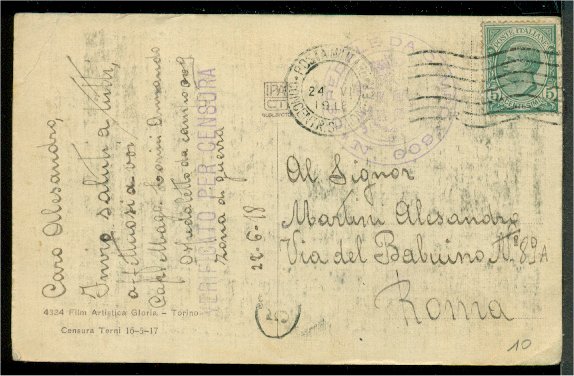 Caro Alesandro,
Invio saluti a tutti,
affettuosi a voi
Cap. Magg.
Ospedaletto da campo
Zona di guerra
22-6-18
VERIFICATO PER CENSURA
4334 Film Artistica Gloria - Torino
Censura Terni 16-5-17
POSTE ITALIANE
5 CENTESIMI 5
24 VI
Al Signor
Martini Alesandro
Via del Babuino N.º 89A
Roma
10